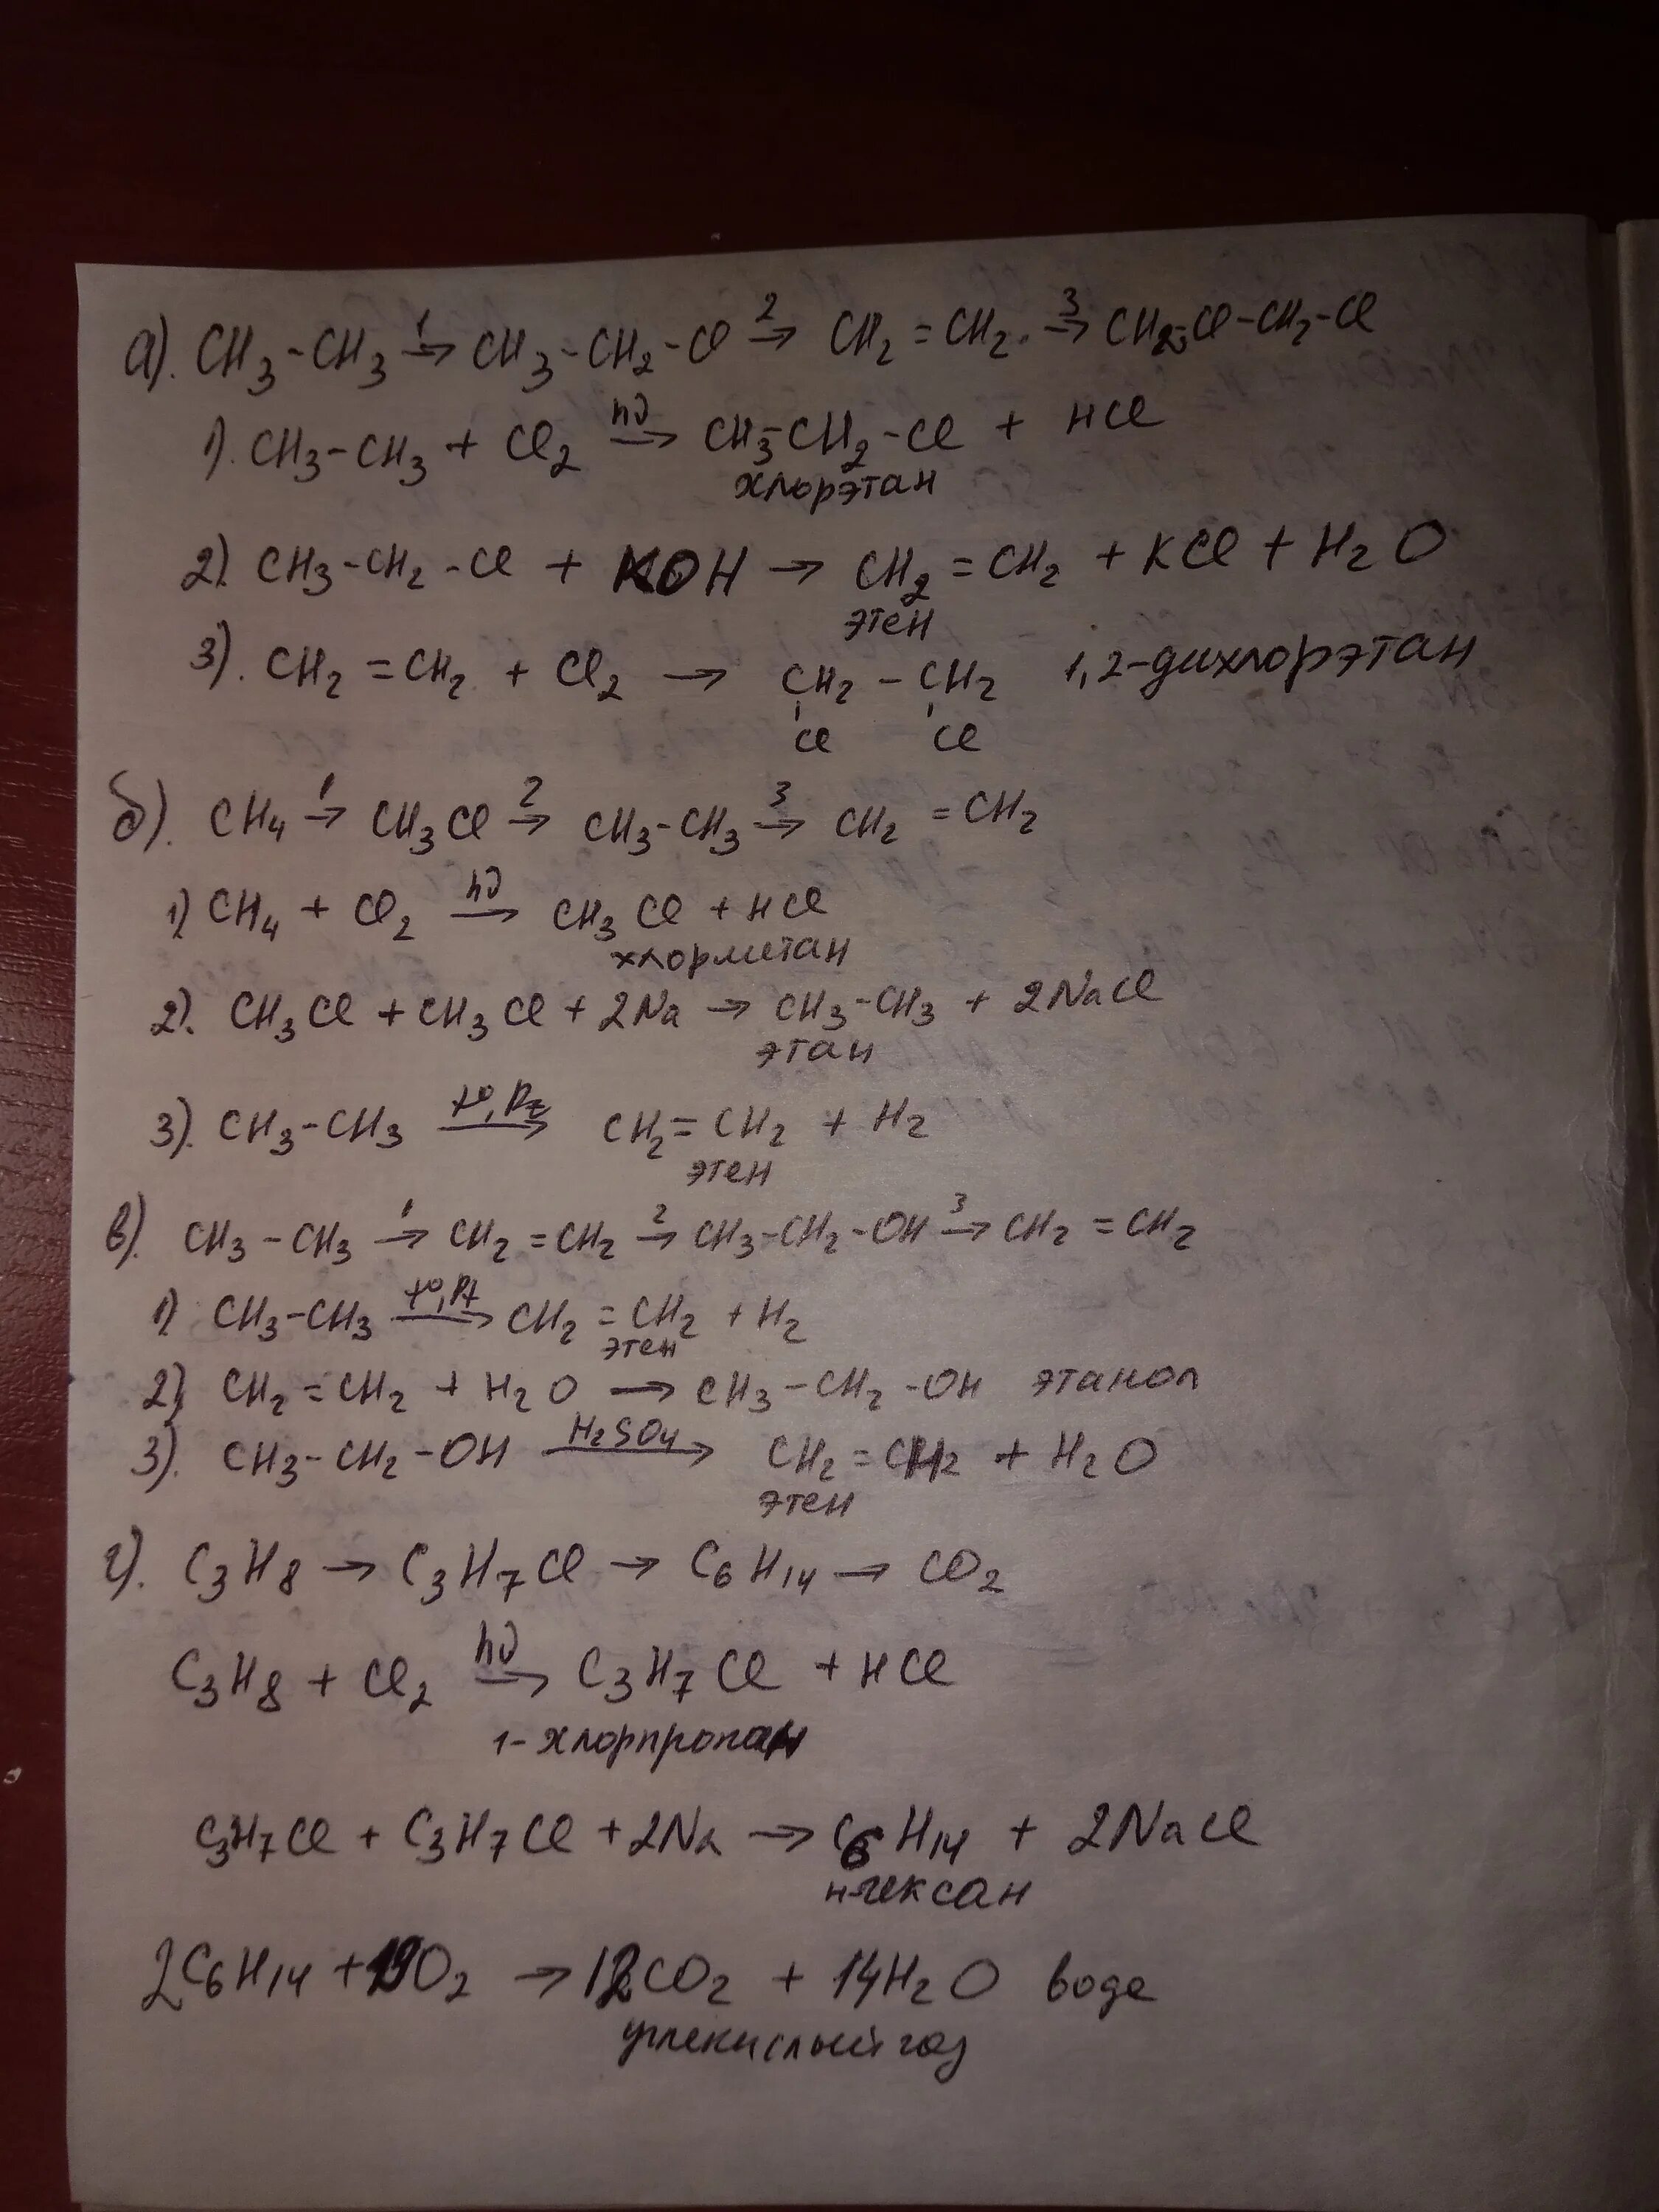 а). CH3-CH3 →1 CH3-CH2-Cl →2 CH2=CH2 →3 CH2-Cl-CH2-Cl
1). CH3-CH3 + Cl2 →hν CH3-CH2-Cl + HCl
хлорэтан
2). CH3-CH2-Cl + KOH → CH2=CH2 + KCl + H2O
этен
3). CH2=CH2 + Cl2 → CH2-CH2 1,2-дихлорэтан
Cl Cl
б). CH4 →1 CH3Cl →2 CH3-CH3 →3 CH2=CH2
1) CH4 + Cl2 →hν CH3Cl + HCl
хлорметан
2). CH3Cl + CH3Cl + 2Na → CH3-CH3 + 2NaCl
этан
3). CH3-CH3 →t°, Pt CH2=CH2 + H2
этен
в). CH3-CH3 →1 CH2=CH2 →2 CH3-CH2-OH →3 CH2=CH2
1) CH3-CH3 →t°, Pt CH2=CH2 + H2
этен
2) CH2=CH2 + H2O → CH3-CH2-OH этанол
3). CH3-CH2-OH →H2SO4 CH2=CH2 + H2O
этен
г). C3H8 → C3H7Cl → C6H14 → CO2
C3H8 + Cl2 →hν C3H7Cl + HCl
1-хлорпропан
C3H7Cl + C3H7Cl + 2Na → C6H14 + 2NaCl
н-гексан
2C6H14 + 19O2 → 12CO2 + 14H2O вода
углекислый газ